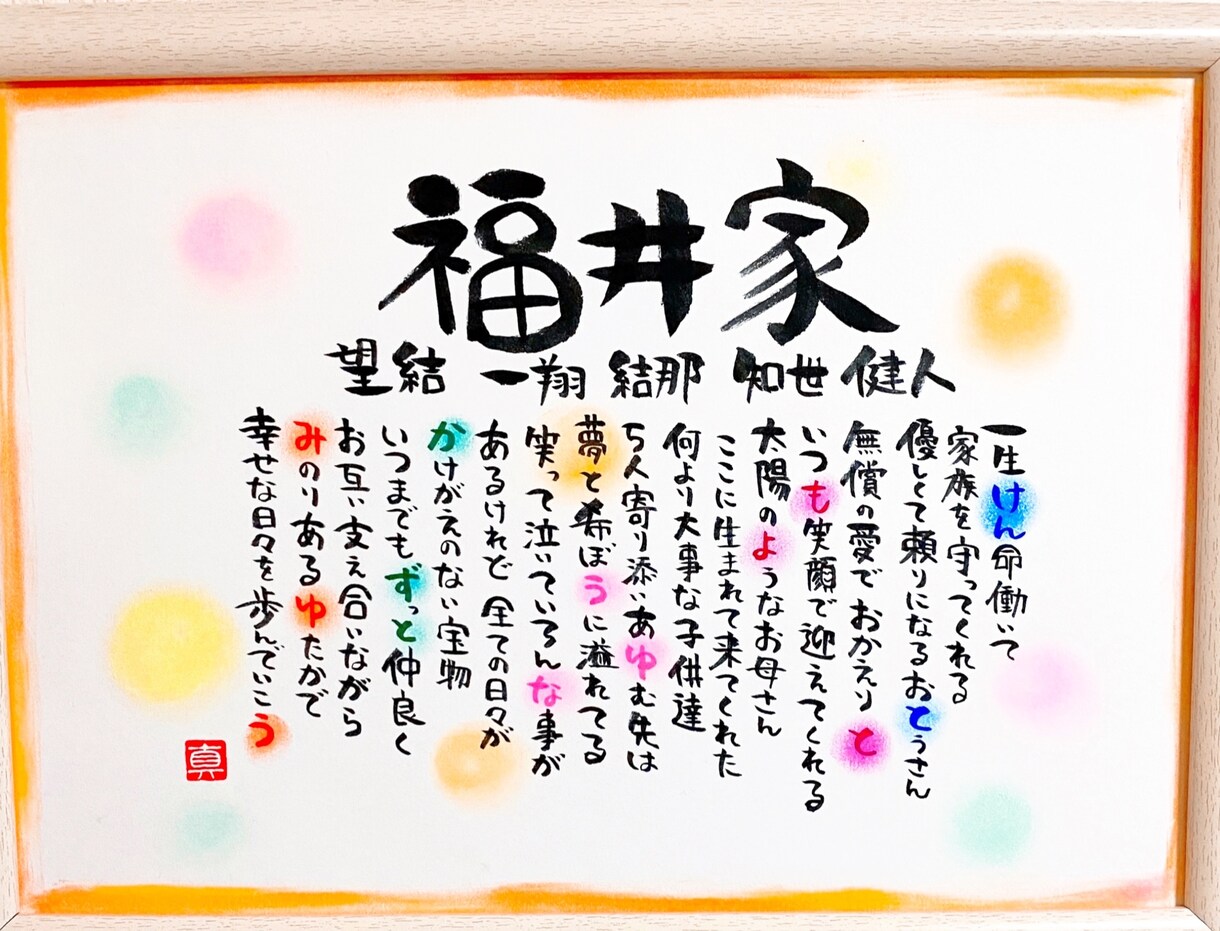 福井家
望結 一翔 結那 知世 健人
一生けん命働いて
家族を守ってくれる
優しくて頼りになるおとうさん
無償の愛でおかえりと
いつも笑顔で迎えてくれる
太陽のようなお母さん
ここに生まれて来てくれた
何より大事な子供達
5人寄り添いあゆむ先は
夢と希ぼうに溢れてる
笑って泣いていろんな事が
あるけれど全ての日々が
かけがえのない宝物
いつまでもずっと仲良く
お互い支え合いながら
みのりあるゆたかで
幸せな日々を歩んでいこう
真